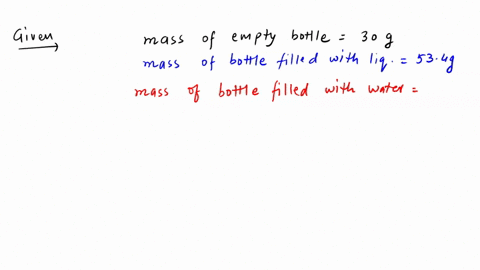 Given
mass of empty bottle = 30 g
mass of bottle filled with liq. = 53.4g
mass of bottle filled with water =